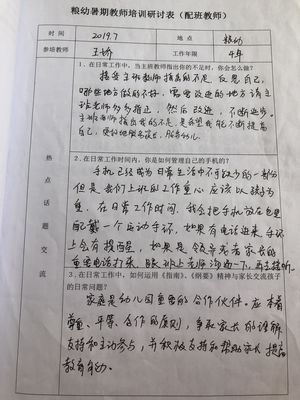 粮幼暑期教师培训研讨表（配班教师）
时 间 2019.7 地 点 粮幼
参培教师 王娇 工作年限 4年
热点话题交流
1、在日常工作中，当主班教师指出你的不足时，你会怎么做？
接受主班教师指出的不足，反思自己，
哪些地方做的不好，需要改进的地方请主
班老师多多指正，然后改进，不断进步。
主班老师指出我的不足，是希望我能不断提高
自己，更好地服务家长、服务幼儿
2、在日常工作时间内，你是如何管理自己的手机的？
手机已经成为日常生活中不可缺少的一部分
但是我们上班的工作重心应该以孩子为
重，在日常工作时间，我会把手机放在包里
配戴一个运动手环，如果有电话进来，手环
上会有提醒，如果是领导或者家长的
重要电话打来，跟班上老师沟通一下，再去接听。
3、在日常工作中，如何运用《指南》、《纲要》精神与家长交流孩子
的日常问题？
家庭是幼儿园重要的合作伙伴。应本着
尊重、平等、合作的原则，争取家长的理解、
支持和主动参与，并积极支持和帮助家长提高
教育能力。